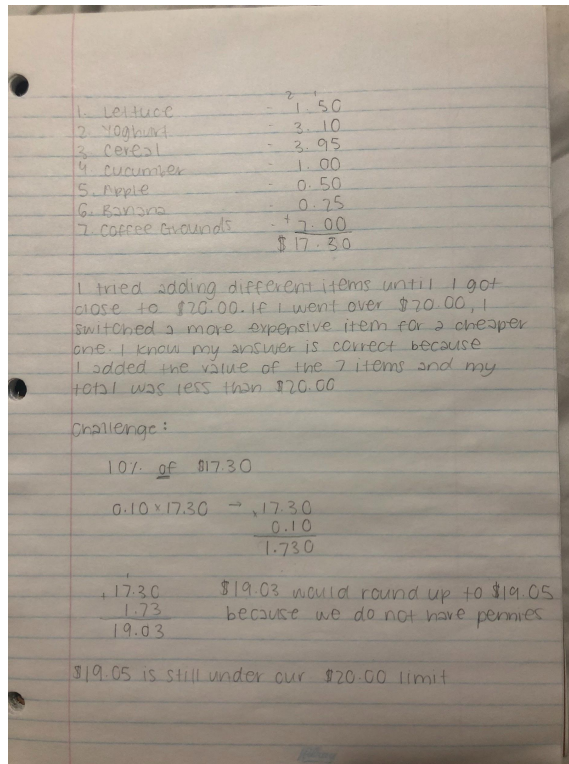 2 1
1. Lettuce - 1.50
2. Yoghurt - 3.10
3. Cereal - 3.95
4. Cucumber - 1.00
5. Apple - 0.50
6. Banana - 0.25
7. Coffee Grounds - + 7.00
$17.30
I tried adding different items until I got
close to $20.00. If I went over $20.00, I
switched a more expensive item for a cheaper
one. I know my answer is correct because
I added the value of the 7 items and my
total was less than $20.00
Challenge:
10% of $17.30
0.10 × 17.30 → × 17.30
0.10
1.730
1
+ 17.30 $19.03 would round up to $19.05
1.73 because we do not have pennies
19.03
$19.05 is still under our $20.00 limit